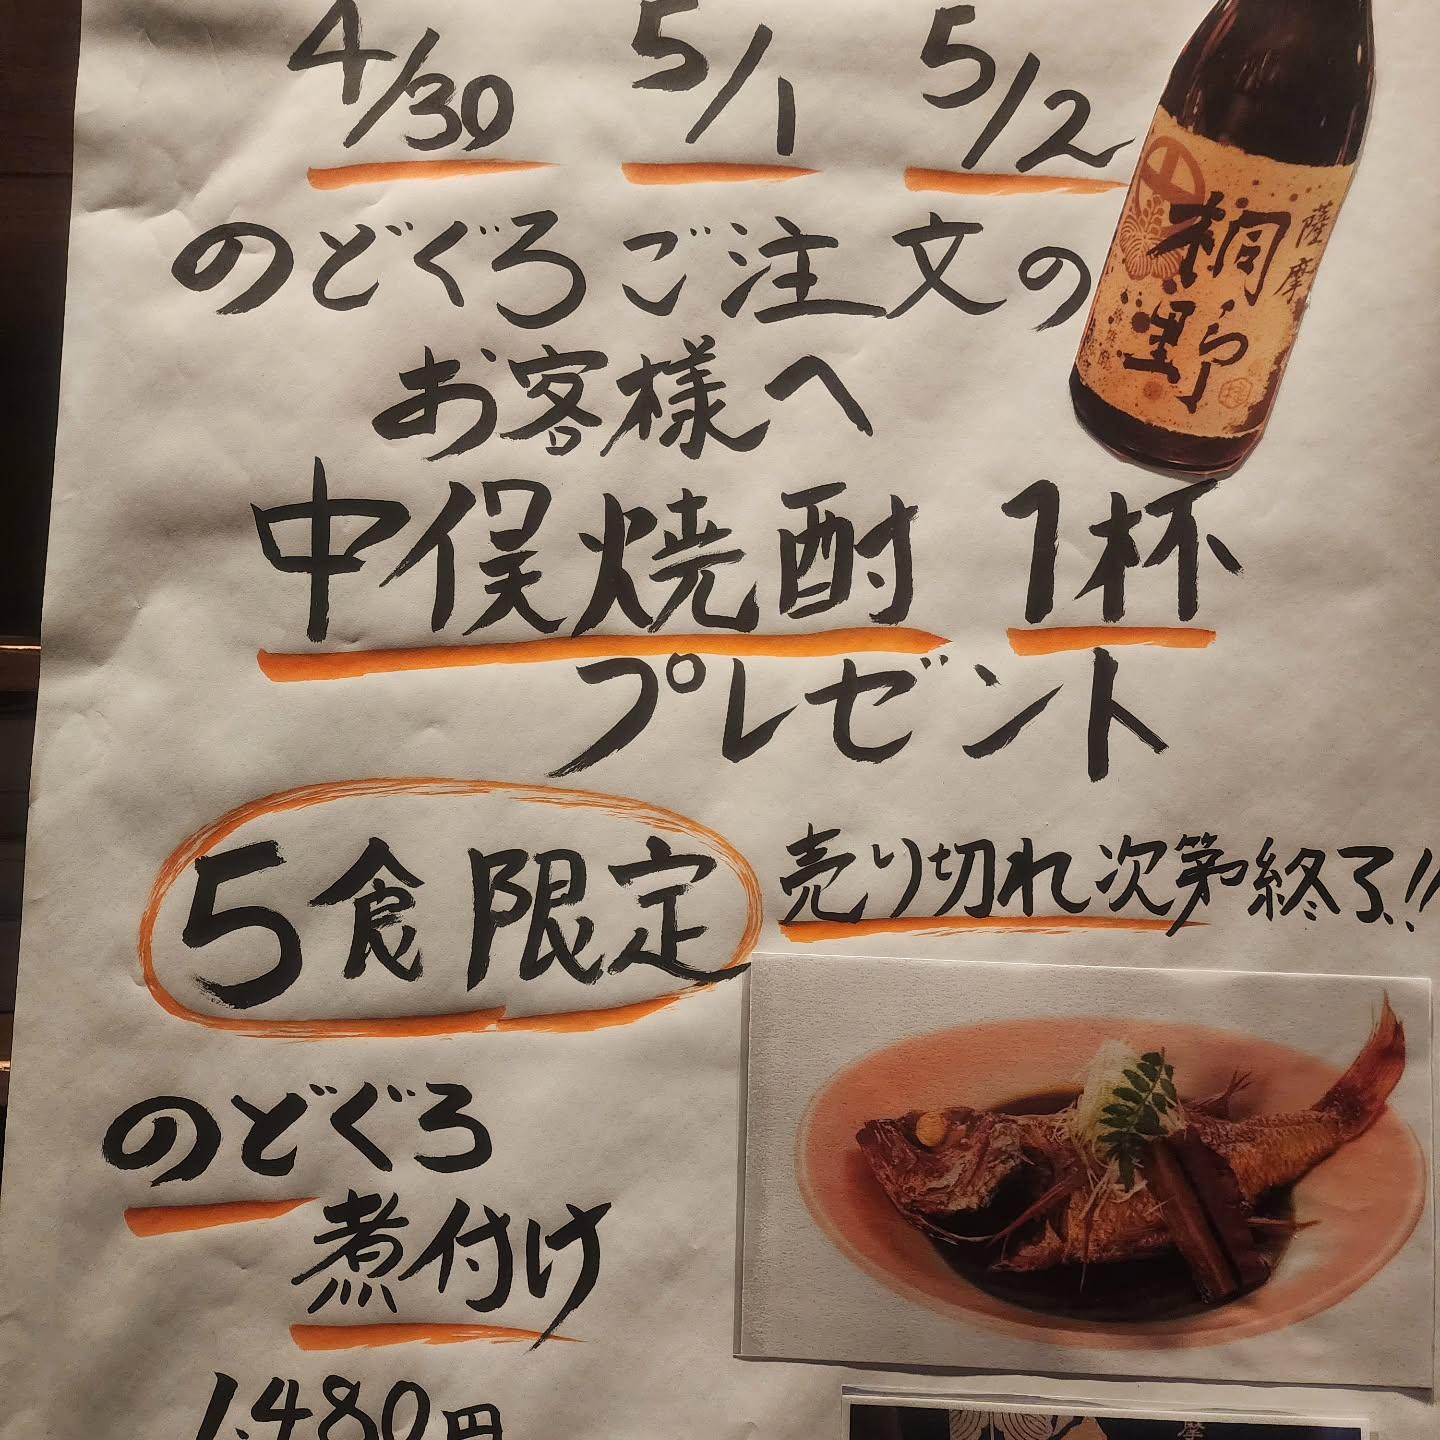 4/30 5/1 5/2
のどぐろご注文の
お客様へ
中俣焼酎 1杯
プレゼント
5食限定 売り切れ次第終了!!
のどぐろ
煮付け
1,480円
薩摩
桐野
摩